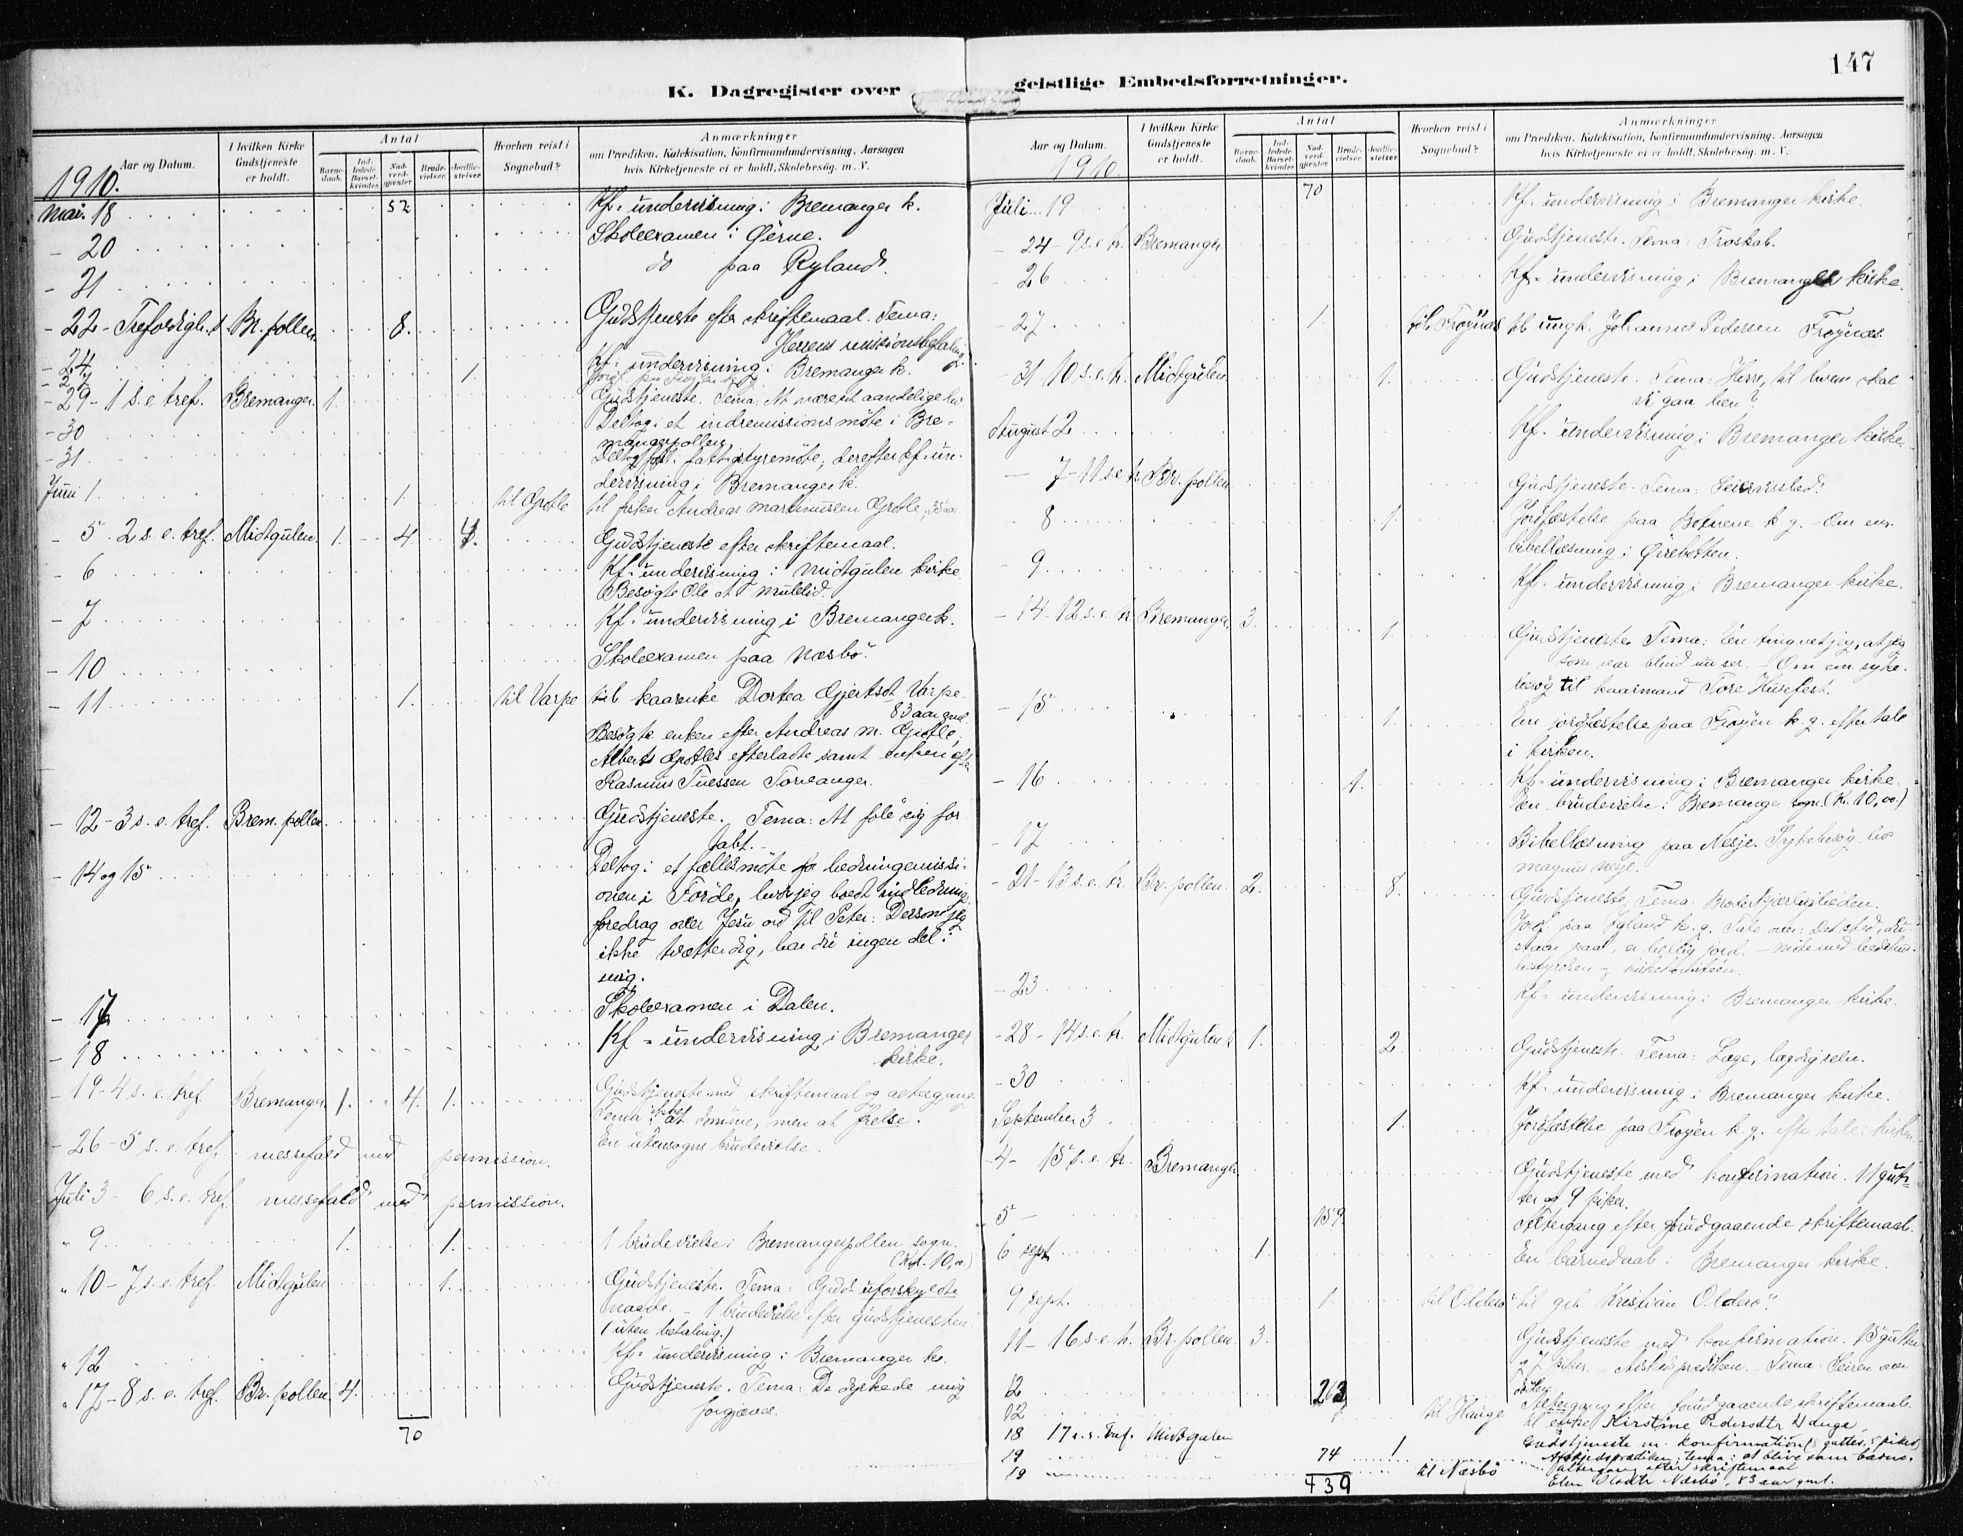 147
K. Dagregister over geistlige Embedsforretninger.
Aar og Datum.
I hvilken Kirke Gudstjeneste er holdt.
Antal
Barnedaab.
Indledede Barselkvinder.
Nadverdgjester
Brudevielser
Jordfæstelser
Hvorhen reist i Sognebud?
Anmærkninger
om Prædiken, Katekisation, Konfirmandundervisning, Aarsagen
hvis Kirketjeneste ei er holdt, Skolebesøg, m. V.
1910.
Mai. 18 52 Kf.-undervisning i Bremanger k.
- 20 Skoleexamen i
- 21 do paa Ryland.
- 22 - Trefoldigh. Br. pollen 8. Gudstjeneste efter skriftemaal. Tema:
Herrens missionsbefaling.
- 24 Kf.-undervisning i Bremanger k.
- 27 1.
- 29 - 1 s. e. tref. Bremanger. 1. Gudstjeneste. Tema: At
- 30 Deltog i et indremissionsmøte i Bre-
mangerpollen.
- 31 derefter kf.-un-
dervisning i Bremanger k.
Juni 1. 1. til Grotle til fisker Andreas Martinussen Grotle,
- 5. 2 s. e. tref. Midtgulen. 1. 4 Gudstjeneste efter skriftemaal.
- 6 Kf.-undervisning i Midtgulen kirke.
Besøgte Ole
- 7 Kf.-undervisning i Bremanger k.
- 10 Skoleexamen paa Næsbø.
- 11 1. til Varpe til kaarenke Dortea Gjertsdt. Varpe
83 aar gml.
Besøgte enken efter Andreas M. Grotle,
Alberts Grotles efterladte samt enken efter
Rasmus
- 12 - 3 s. e. tref. Brem. pollen Gudstjeneste. Tema: At føle sig for
tabt.
- 14 og 15 Deltog i et fællesmøte for hedningemissi-
onen i Førde, hvor jeg holdt indlednings-
foredrag over Jesu ord til Peter: Dersom jeg
ikke tvætter dig, har du ingen del i
mig.
- 17 Skoleexamen i Dalen.
- 18 Kf.-undervisning i Bremanger
kirke.
- 19 - 4 s. e. tref. Bremanger 1. 4. 1. Gudstjeneste med skriftemaal og altergang.
Tema: ikke at dømme, men at frelse.
En utensogns brudevielse.
- 26 - 5 s. e. tref. messefald med permission.
Juli 3 - 6 s. e. tref. messefald med permission.
" 9 1. 1. 1 brudevielse i Bremangerpollen sogn.
(Kr. 10,00)
" 10 - 7 s. e. tref. Midtgulen 1. Gudstjeneste. Tema: Guds uforskyldte
naade. - 1 brudevielse efter gudstjenesten.
(uten betaling.)
" 12 Kf.-undervisning i Bremanger k.
" 17 - 8 s. e. tref. Br. pollen. 4. Gudstjeneste. Tema: De dyrkede mig
forgjæves.
70
Aar og Datum.
I hvilken Kirke Gudstjeneste er holdt.
Antal
Barnedaab.
Indledede Barselkvinder
Nadverdgjester
Brudevielser
Jordfæstelser
Hvorhen reist i Sognebud?
Anmærkninger
om Prædiken, Katekisation, Konfirmandundervisning, Aarsagen
hvis Kirketjeneste ei er holdt, Skolebesøg, m. V.
1910.
Juli 19 70 Kf.-undervisning i Bremanger kirke.
- 24 - 9 s. e. tr. Bremanger Gudstjeneste. Tema: Troskab.
- 26 Kf.-undervisning i Bremanger kirke.
- 27 1. til Frøynæs til ungk. Johannes Pedersen Frøynæs.
- 31 10 s. e. tr. Midtgulen 1. Gudstjeneste. Tema: Herre, til hvem skal
vi gaa hen?
August 2 Kf.-undervisning i Bremanger kirke.
- 7 - 11 s. e. tr. Br. pollen Gudstjeneste. Tema:
- 8 1. Jordfæstelse paa k. g. - Om en
bibellæsning i
- 9 Kf.-undervisning i Bremanger kirke.
- 14 - 12 s. e. tr. Bremanger 3. 1. Gudstjeneste. Tema: En ting vet jeg, at jeg
som var blind nu ser. - Om em. syke-
besøg til kaarmand Tore Husefest.
- 15 1. En jordfæstelse paa Frøyen k. g. efter tale
i kirken.
- 16 1. Kf.-undervisning i Bremanger kirke.
En brudevielse i Bremanger sogn (Kr. 10,00)
- 17 Bibellæsning paa Nesje. Sykebesøg hos
Magnus Nesje.
- 21 - 13 s. e. tr. Br. pollen 2. 8. Gudstjeneste. Tema: Broderkjærligheden.
Jordf. paa Igland k. g. Tale over: Det sted, du
staar paa, er hellig jord. - møte med
- 23 Kf.-undervisning i Bremanger kirke.
- 28 - 14 s. e. tr. Midtgulen 1. 2 Gudstjeneste. Tema: Læge, læg dig selv.
- 30 Kf.-undervisning i Bremanger kirke.
September 3 1. Jordfæstelse paa Frøyen k. g. efter tale i kirken.
- 4 - 15 s. e. tr. Bremanger Gudstjeneste med konfirmation. 11 gut-
ter og 9 piker.
5 - 159 Altergang efter forudgaaende skriftemaal.
6 sept 1. En barnedaab. Bremanger kirke.
9 sept. 1 til Oldersø til gb. Kristian Oldersø.
11 - 16 s. e. tr. Br. pollen. 3. Gudstjeneste med konfirmation. 15 gutter
og 7 piker. - Avskedsprediken. - Tema: Seiren over
døden.
12 Altergang efter forudgaaende skriftemaal.
12 til Hauge til enke Kirstine Pedersdtr Hauge
18 17 s. e. tref. Midtgulen Gudstjeneste m. konfirmation
19 74 1 Avskjedsprædiken, tema: at blive som barn.
Altergang efter skriftemaal
19 til Næsbø Elen Næsbø, 83 aar gml.
439